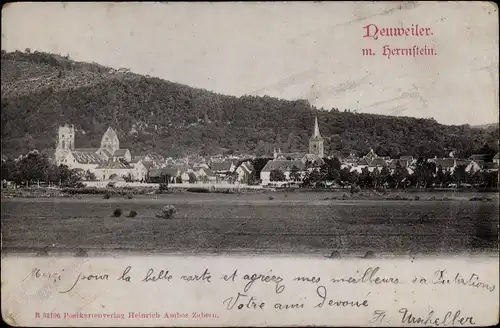 Neuweiler.
m. Herrnstein.
Merci pour la belle carte et agréez mes meilleurs salutations
Votre ami devoué
R 31196 Postkartenverlag Heinrich Ambos Zabern.